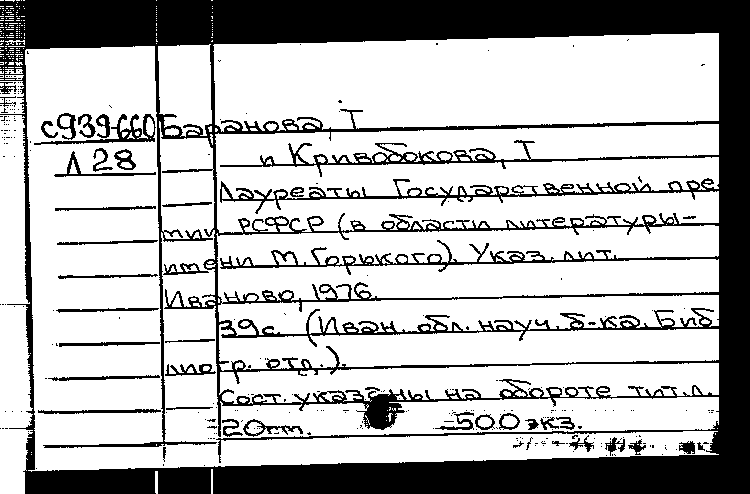 с939-660 Баранова, Т
Л 28 и Кривобокова, Т
Лауреаты Государственной пре-
мии РСФСР (в области литературы-
имени М. Горького). Указ. лит.
Иваново, 1976.
39с. (Иван. обл. науч. б-ка. Биб-
лиогр. отд.).
Сост. указаны на обороте тит. л.
20см. 500 экз.